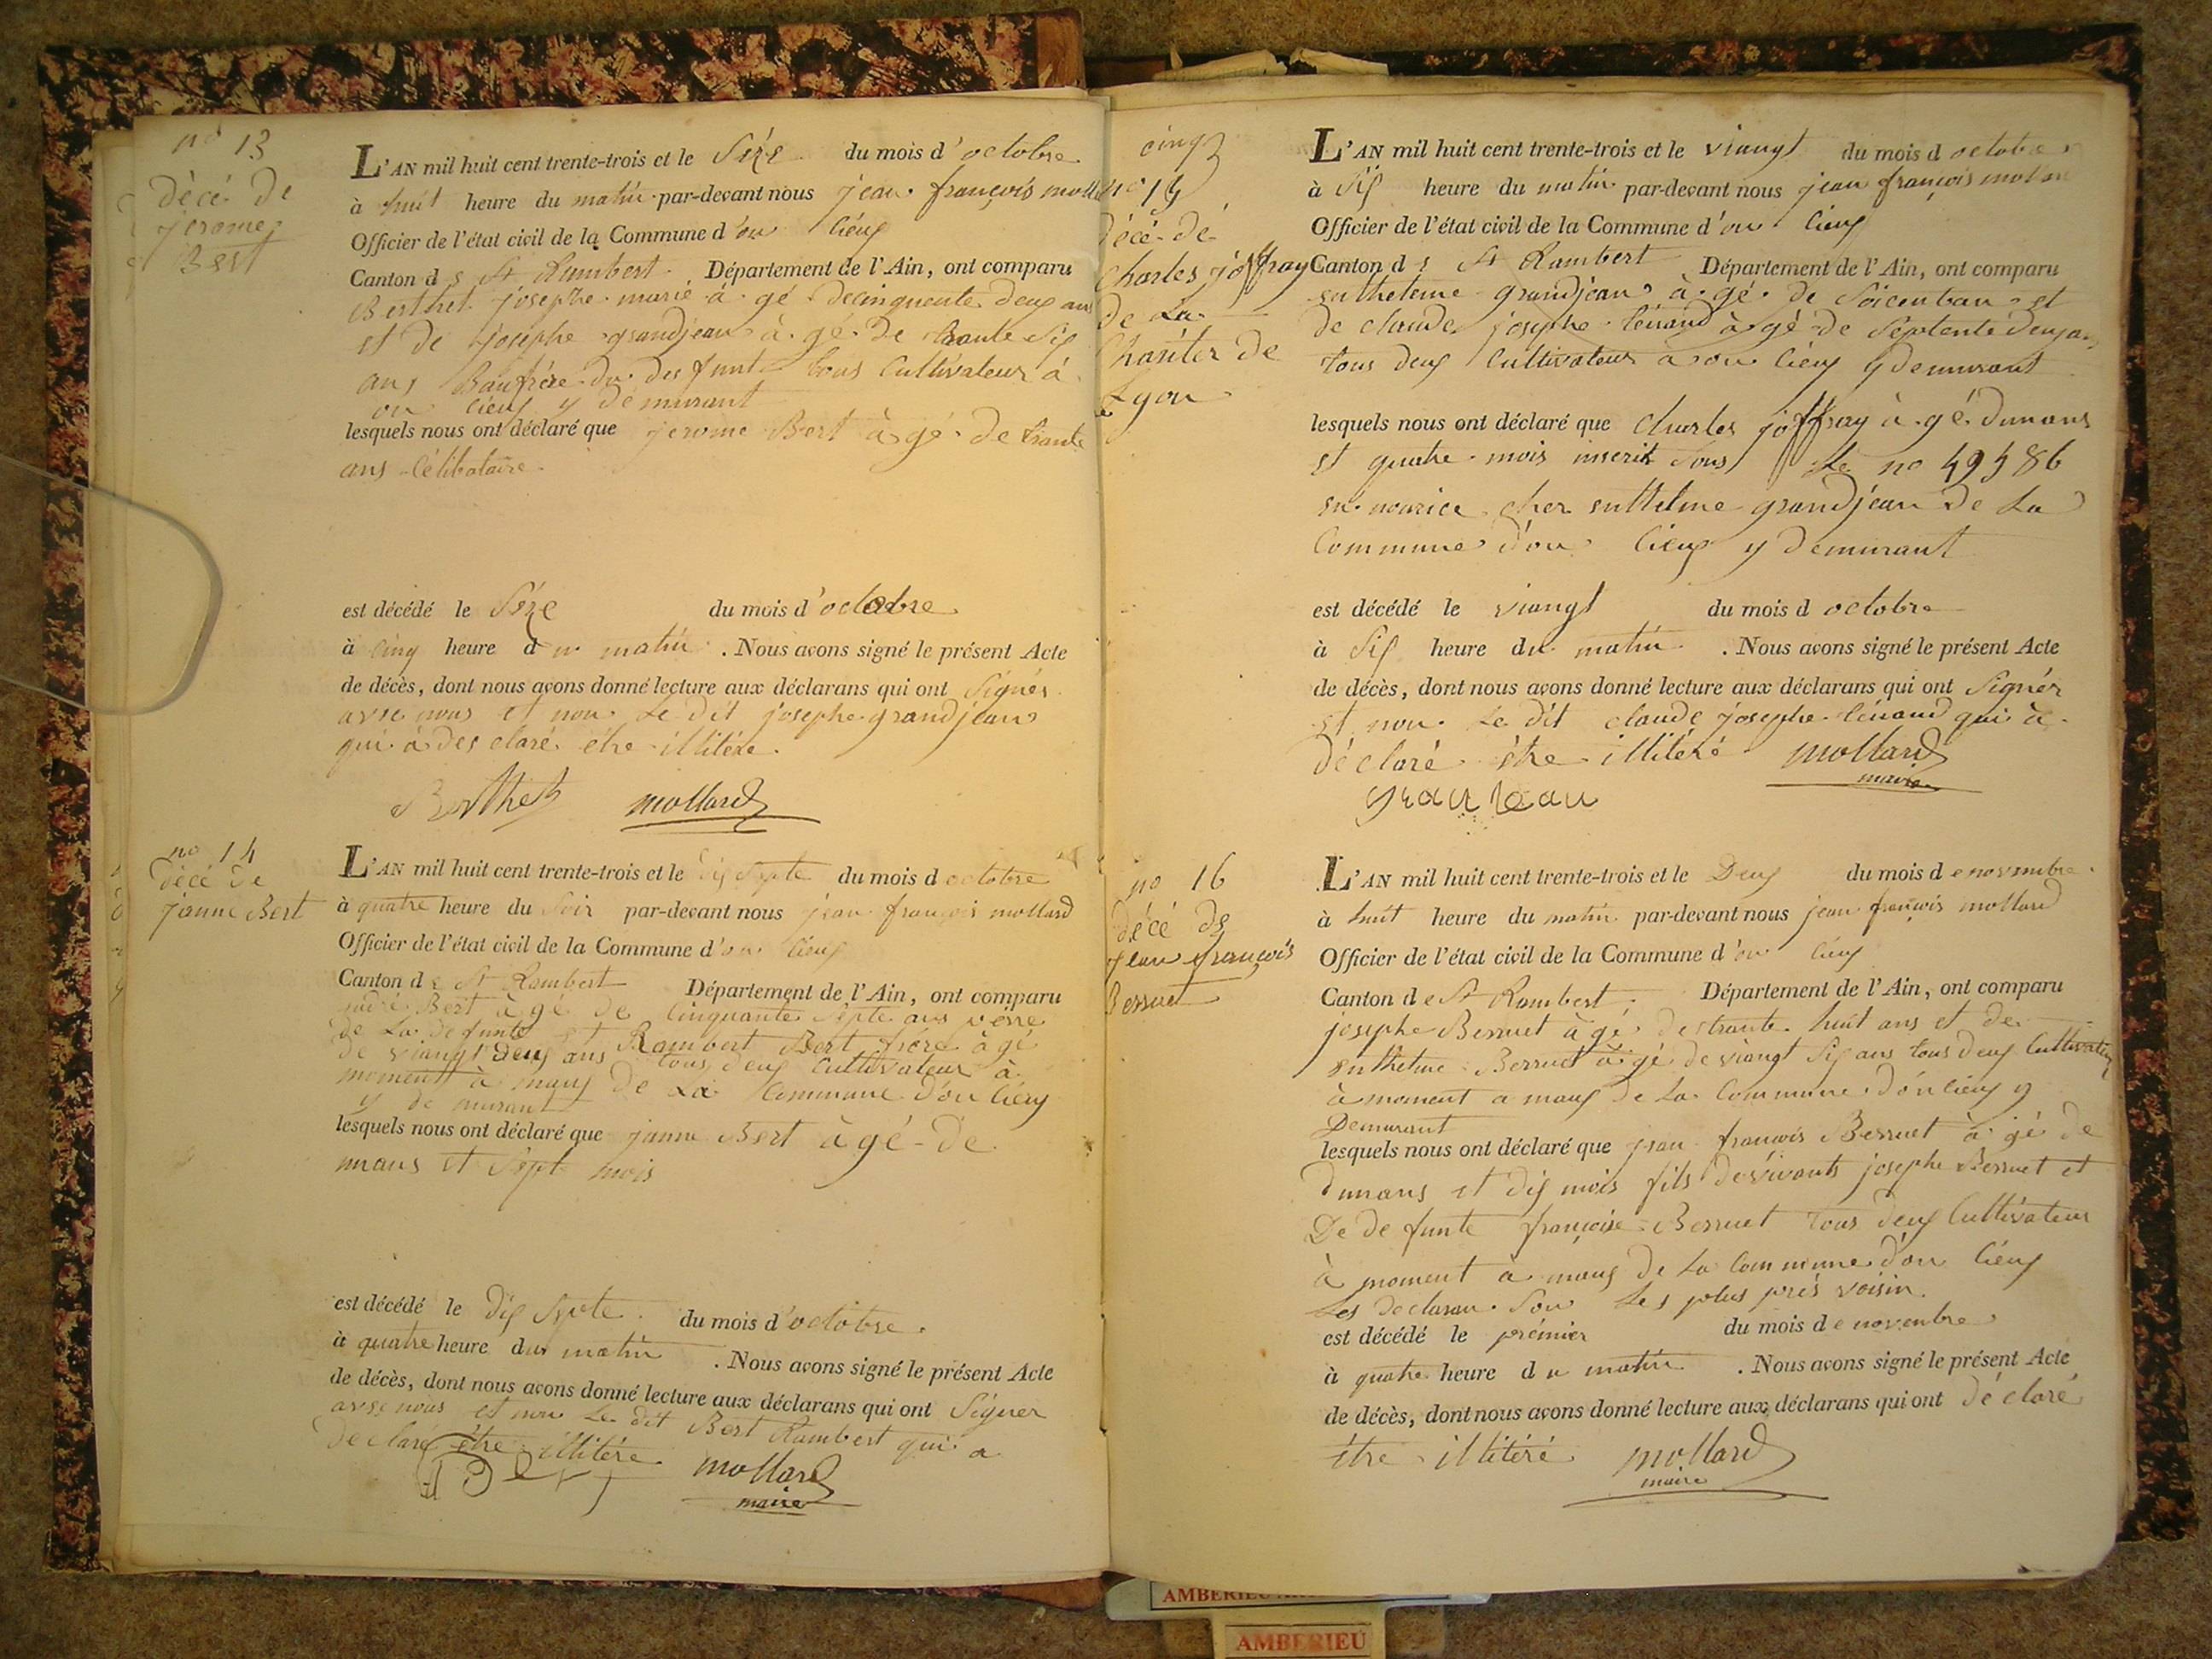 no 13
décé de
jerome
Bert
L'AN mil huit cent trente-trois et le séze du mois d'octobre
à huit heure du matin par-devant nous jean françois
Officier de l'état civil de la Commune d'on cieux
Canton de St Rambert Département de l'Ain, ont comparu
Berthet josephe marie à gé decinquente deux ans
et de josephe grandjean à gé de trante six
ans Baufrére du defunt tous Cultivateur à
on cieux y demurant
lesquels nous ont déclaré que jerome Bert à gé de trante
ans Célibataire
est décédé le séze du mois d'octobre
à cinq heure du matin . Nous avons signé le présent Acte
de décès, dont nous avons donné lecture aux déclarans qui ont signér
avse nous et non Le dit josephe grandjean
qui à des claré étre illitére
Berthet mollard
no 14
décé de
janne Bert
L'AN mil huit cent trente-trois et le dix septe du mois d octobre
à quatre heure du soir par-devant nous jean françois mollard
Officier de l'état civil de la Commune d'on cieux
Canton de St Rambert Département de l'Ain, ont comparu
Bert à gé de cinquante septe ans
de La defunte et Rambert Bert frére à gé
de viangt deux ans tous deux cultivateur à
moment à maux de La Commune d'on cieux
y de murant
lesquels nous ont déclaré que janne Bert à gé de
unans et sept mois
est décédé le dix septe du mois d'octobre
à quatre heure du matin . Nous avons signé le présent Acte
de décès, dont nous avons donné lecture aux déclarans qui ont signer
avse nous et non Le dit Bert Rambert qui a
declaré être illitére
Bert mollard
maire
cinq
décé dé
Charles joffray
de La
Charitér de
Lyon
L'AN mil huit cent trente-trois et le viangt du mois d octobre
à six heure du matin par-devant nous jean françois
Officier de l'état civil de la Commune d'on cieux
Canton de St Rambert Département de l'Ain, ont comparu
entheleme grandjean à gé de et
de claude josephe à gé de septente deux
tous deux Cultivateur à on cieux y demurant
lesquels nous ont déclaré que Charles joffray à gé dunans
et quatre mois inserit sous Le no 49486
en nourice cher enthelme grandjean de La
Commune d'on cieux y demurant
est décédé le viangt du mois d octobre
à six heure du matin . Nous avons signé le présent Acte
de décès, dont nous avons donné lecture aux déclarans qui ont signér
et non Le dit claude josephe qui à
déclaré être illitéré mollard
maire
no 16
décé de
jean françois
Berruet
L'AN mil huit cent trente-trois et le Deux du mois de novembre
à huit heure du matin par-devant nous jean françois mollard
Officier de l'état civil de la Commune d'on cieux
Canton de St Rambert Département de l'Ain, ont comparu
josephe Berruet à gé de trante huit ans et de
enthelme Berruet à gé de viangt six ans tous deux Cultivateur
à moment a maux de La Commune d'on cieux y
Demurant
lesquels nous ont déclaré que jean françois Berruet à gé de
dunans et dix mois fils devivants josephe Berruet et
De de funte françoise Berruet tous deux Cultivateur
à moment a maux de La Commune d'on cieux
Les declaran son Les plus prés voisin
est décédé le prémier du mois de novenbre
à quatre heure du matin . Nous avons signé le présent Acte
de décès, dont nous avons donné lecture aux déclarans qui ont déclaré
étre illitéré mollard
maire
AMBERIEU